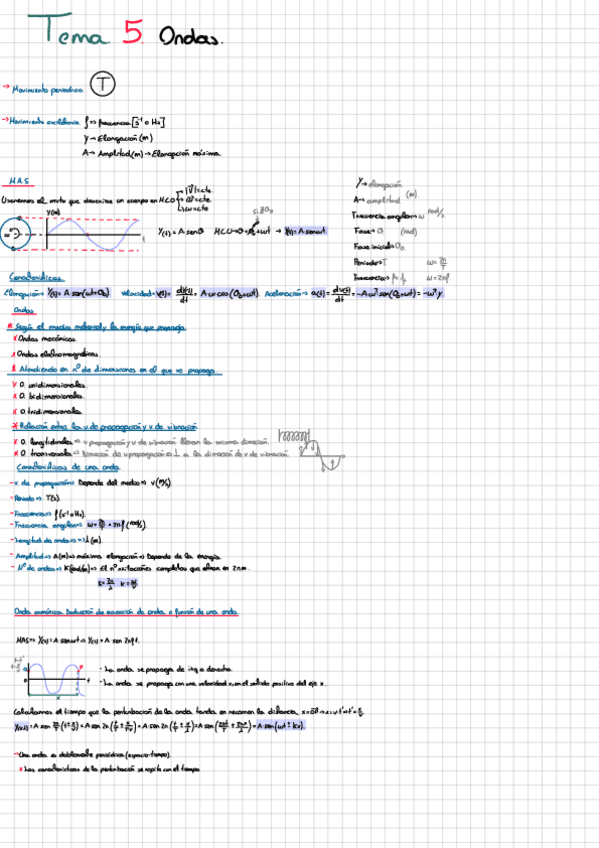 Tema 5. Ondas.
→ Movimiento periodico T
→ Movimiento oscilatorio f ⇒ frecuencia [s⁻¹ o Hz]
y → Elongación (m)
A → Amplitud (m) → Elongación máxima
M.A.S
y → elongación
A → amplitud (m)
Frecuencia angular → ω rad/s
Fase → θ (rad)
Fase inicial → θ₀
Periodo → T ω = 2π/T
ω = 2πf
Usaremos el mvto que describe un cuerpo en MCU
|v̄| = cte
ω = cte
y(m)
t
Y(t) = A senθ MCU → θ = θ₀ + ωt → Y(t) = A senωt
Características
Elongación → Y(t) = A sen(ωt+θ₀) Velocidad → v(t) = dy(t)/dt = A ω cos(θ₀+ωt). Aceleración → a(t) = dv(t)/dt = -Aω² sen(θ₀+ωt) = -ω² y
Ondas
Según el medio material y la energía que propaga
x Ondas mecánicas.
x Ondas electromagnéticas.
Atendiendo en nº de dimensiones en el que se propaga
x O. unidimensionales.
x O. bidimensionales.
x O. tridimensionales.
Relación entre la v de propagación y v de vibración
x O. longitudinales → v propagación y v de vibración llevan la misma dirección.
x O. transversales → Dirección de v propagación es ⊥ a la dirección de v de vibración.
Características de una onda.
- v de propagación: Depende del medio → v (m/s).
- Periodo → T(s).
- Frecuencia → f (s⁻¹ o Hz).
- Frecuencia angular → ω = 2π/T = 2πf (rad/s).
- Longitud de onda → λ (m).
- Amplitud → A(m) → máxima elongación → Depende de la energía.
- Nº de ondas → K (rad/m) → El nº oscilaciones completas que entran en 2π m.
K = 2π/λ K = ω/v
Onda armónica. Deducción de ecuación de onda o función de una onda.
MAS → Y(t) = A senωt → Y(t) = A sen 2πft.
t
x
- La onda se propaga de izq a derecha.
- La onda se propaga con una velocidad v, en el sentido positivo del eje x.
Calculamos el tiempo que la perturbación de la onda tarda en recorrer la distancia,
- Una onda es doblemente periódica (espacio-tiempo).
x Las características de la perturbación se repite con el tiempo